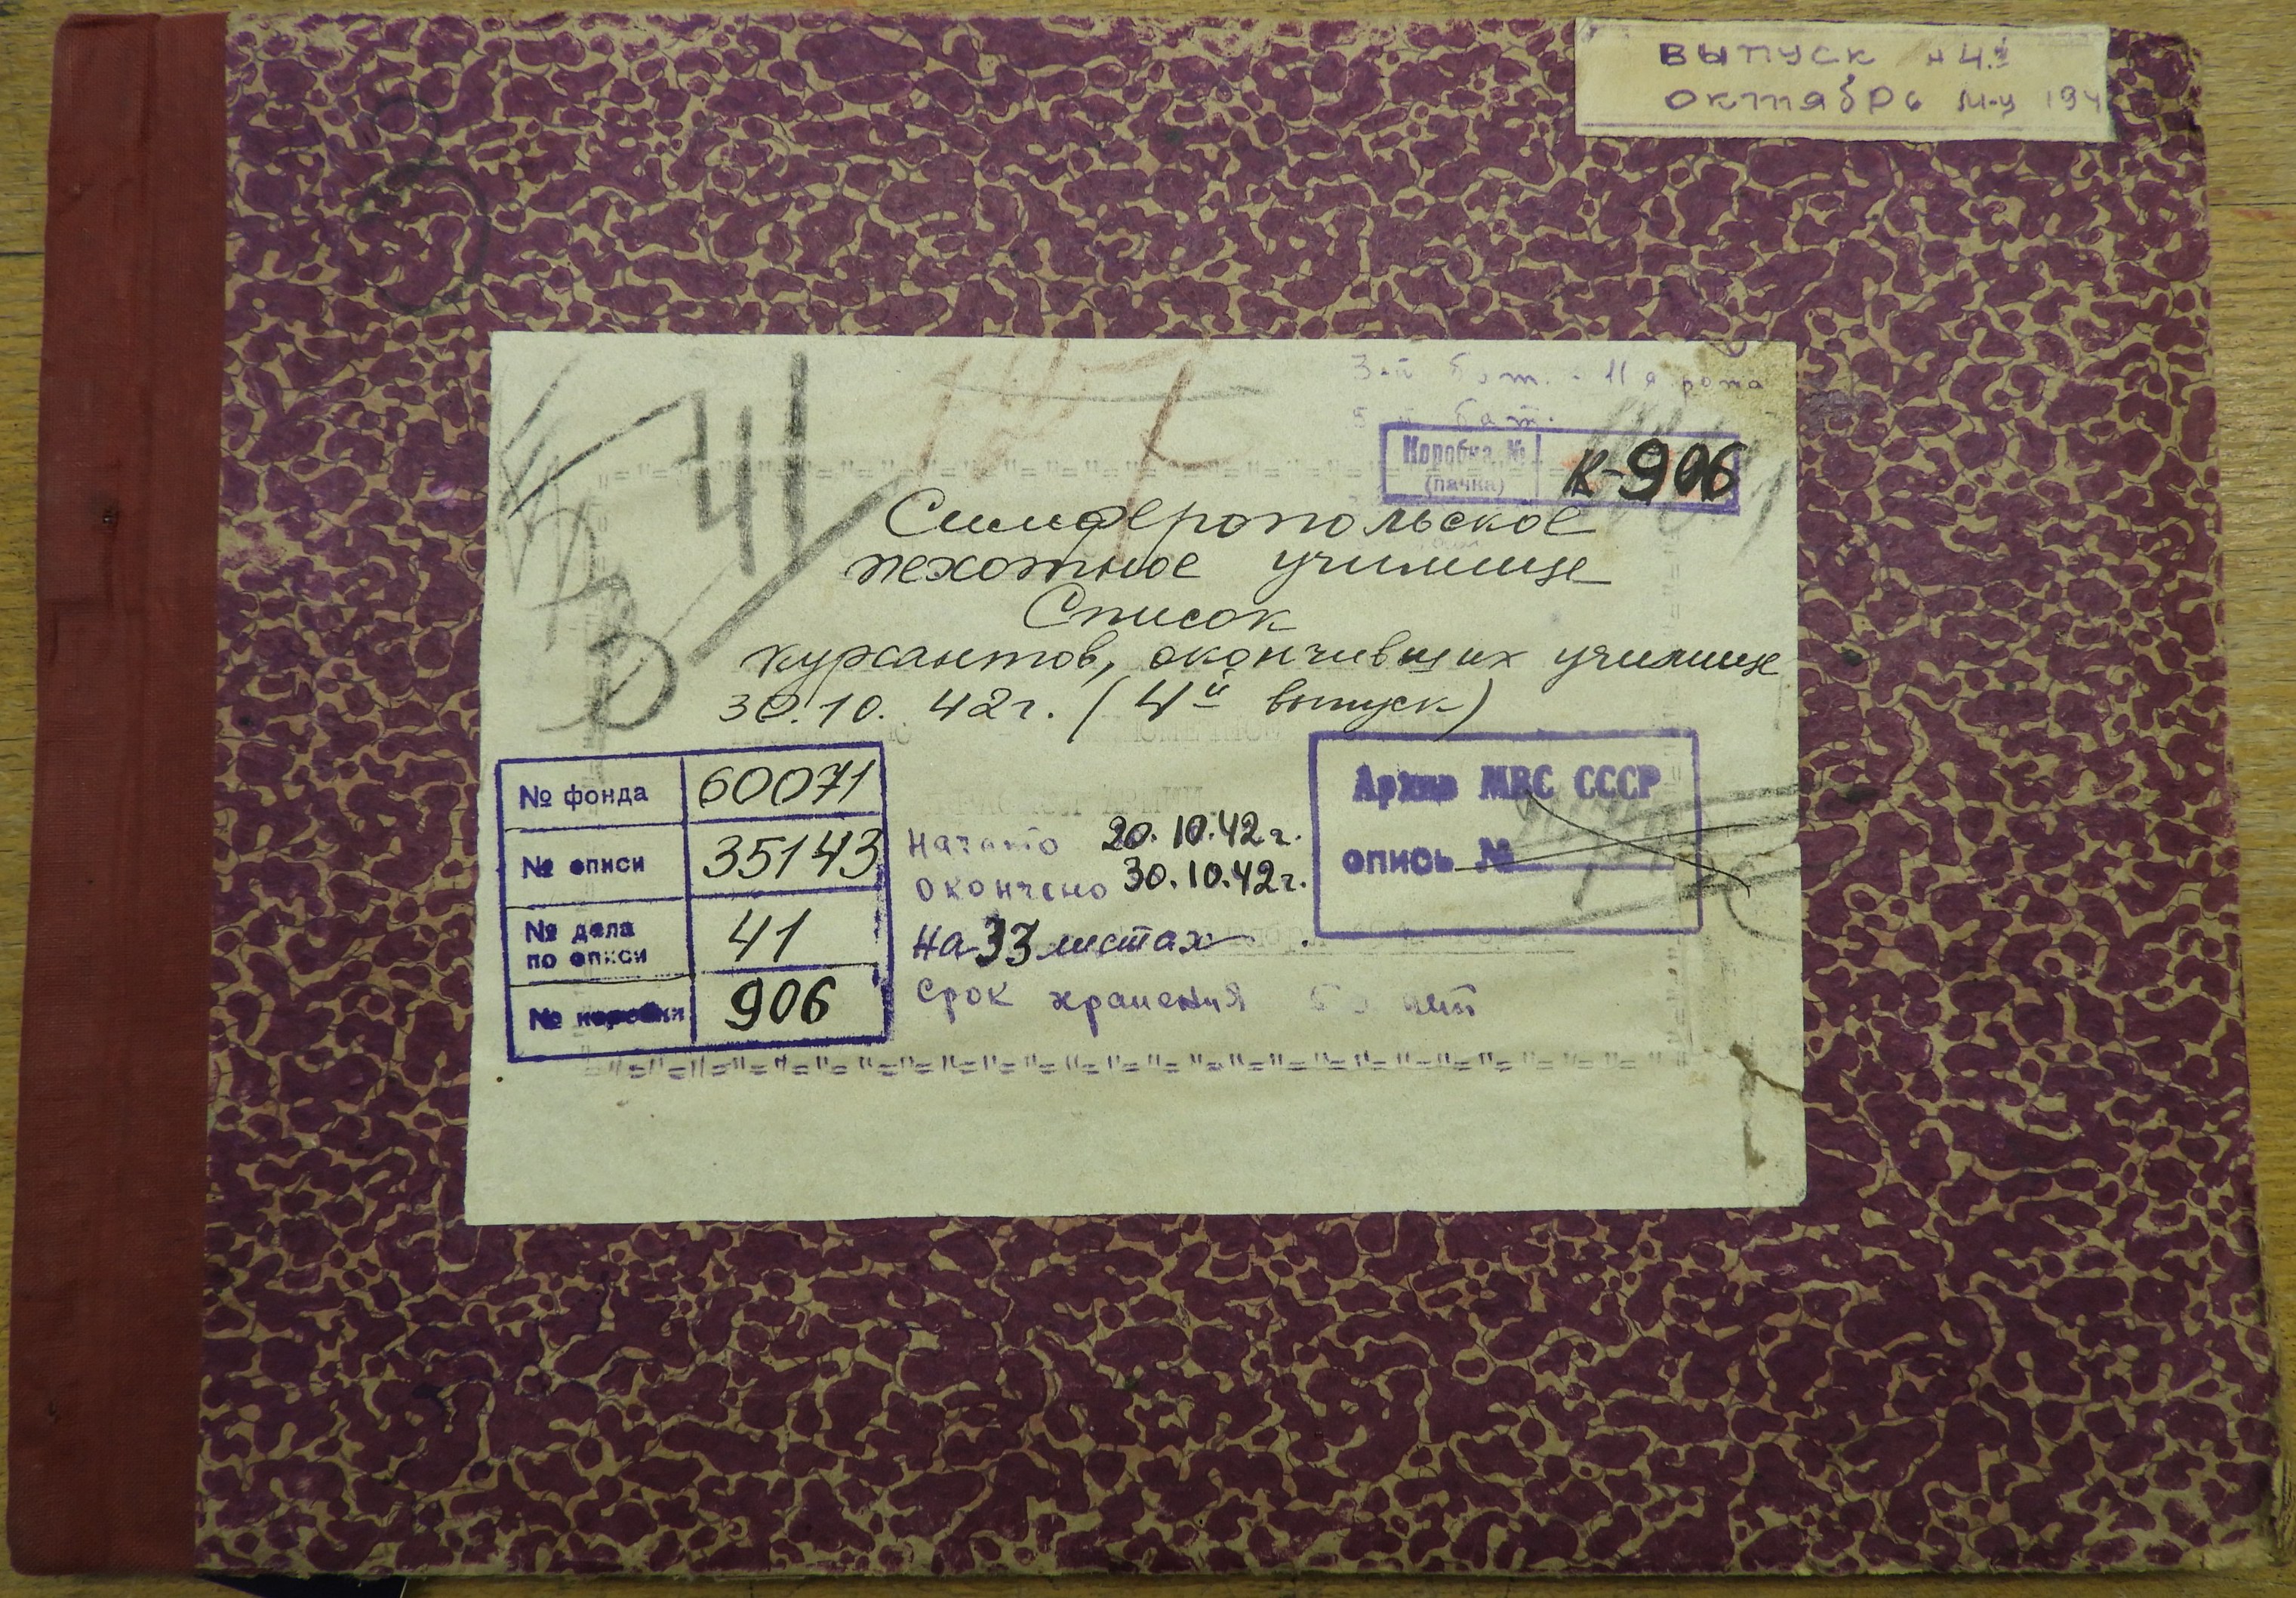 выпуск н 4й
октябрь м-ц 194
41
3-й бат. - 11 я рота
5 й бат.
Коробка №
(пачка)
К-906
Симферопольское
пехотное училище
Список
курсантов, окончивших училище
30.10. 42г. (4й выпуск)
№ фонда 60071
№ описи 35143
№ дела
по описи 41
№ коробки 906
Начато 20.10.42г.
окончено 30.10.42г.
На 33 листах
срок хранения лет
Архив МВС СССР
опись №